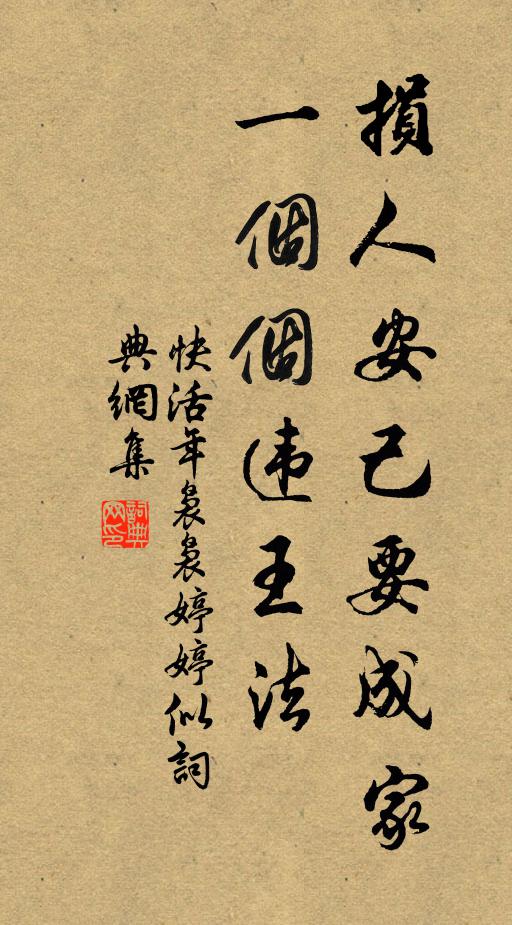 損人安己要成家
一個個违王法
快活年裊裊婷婷似詞
典網集
詞典網印